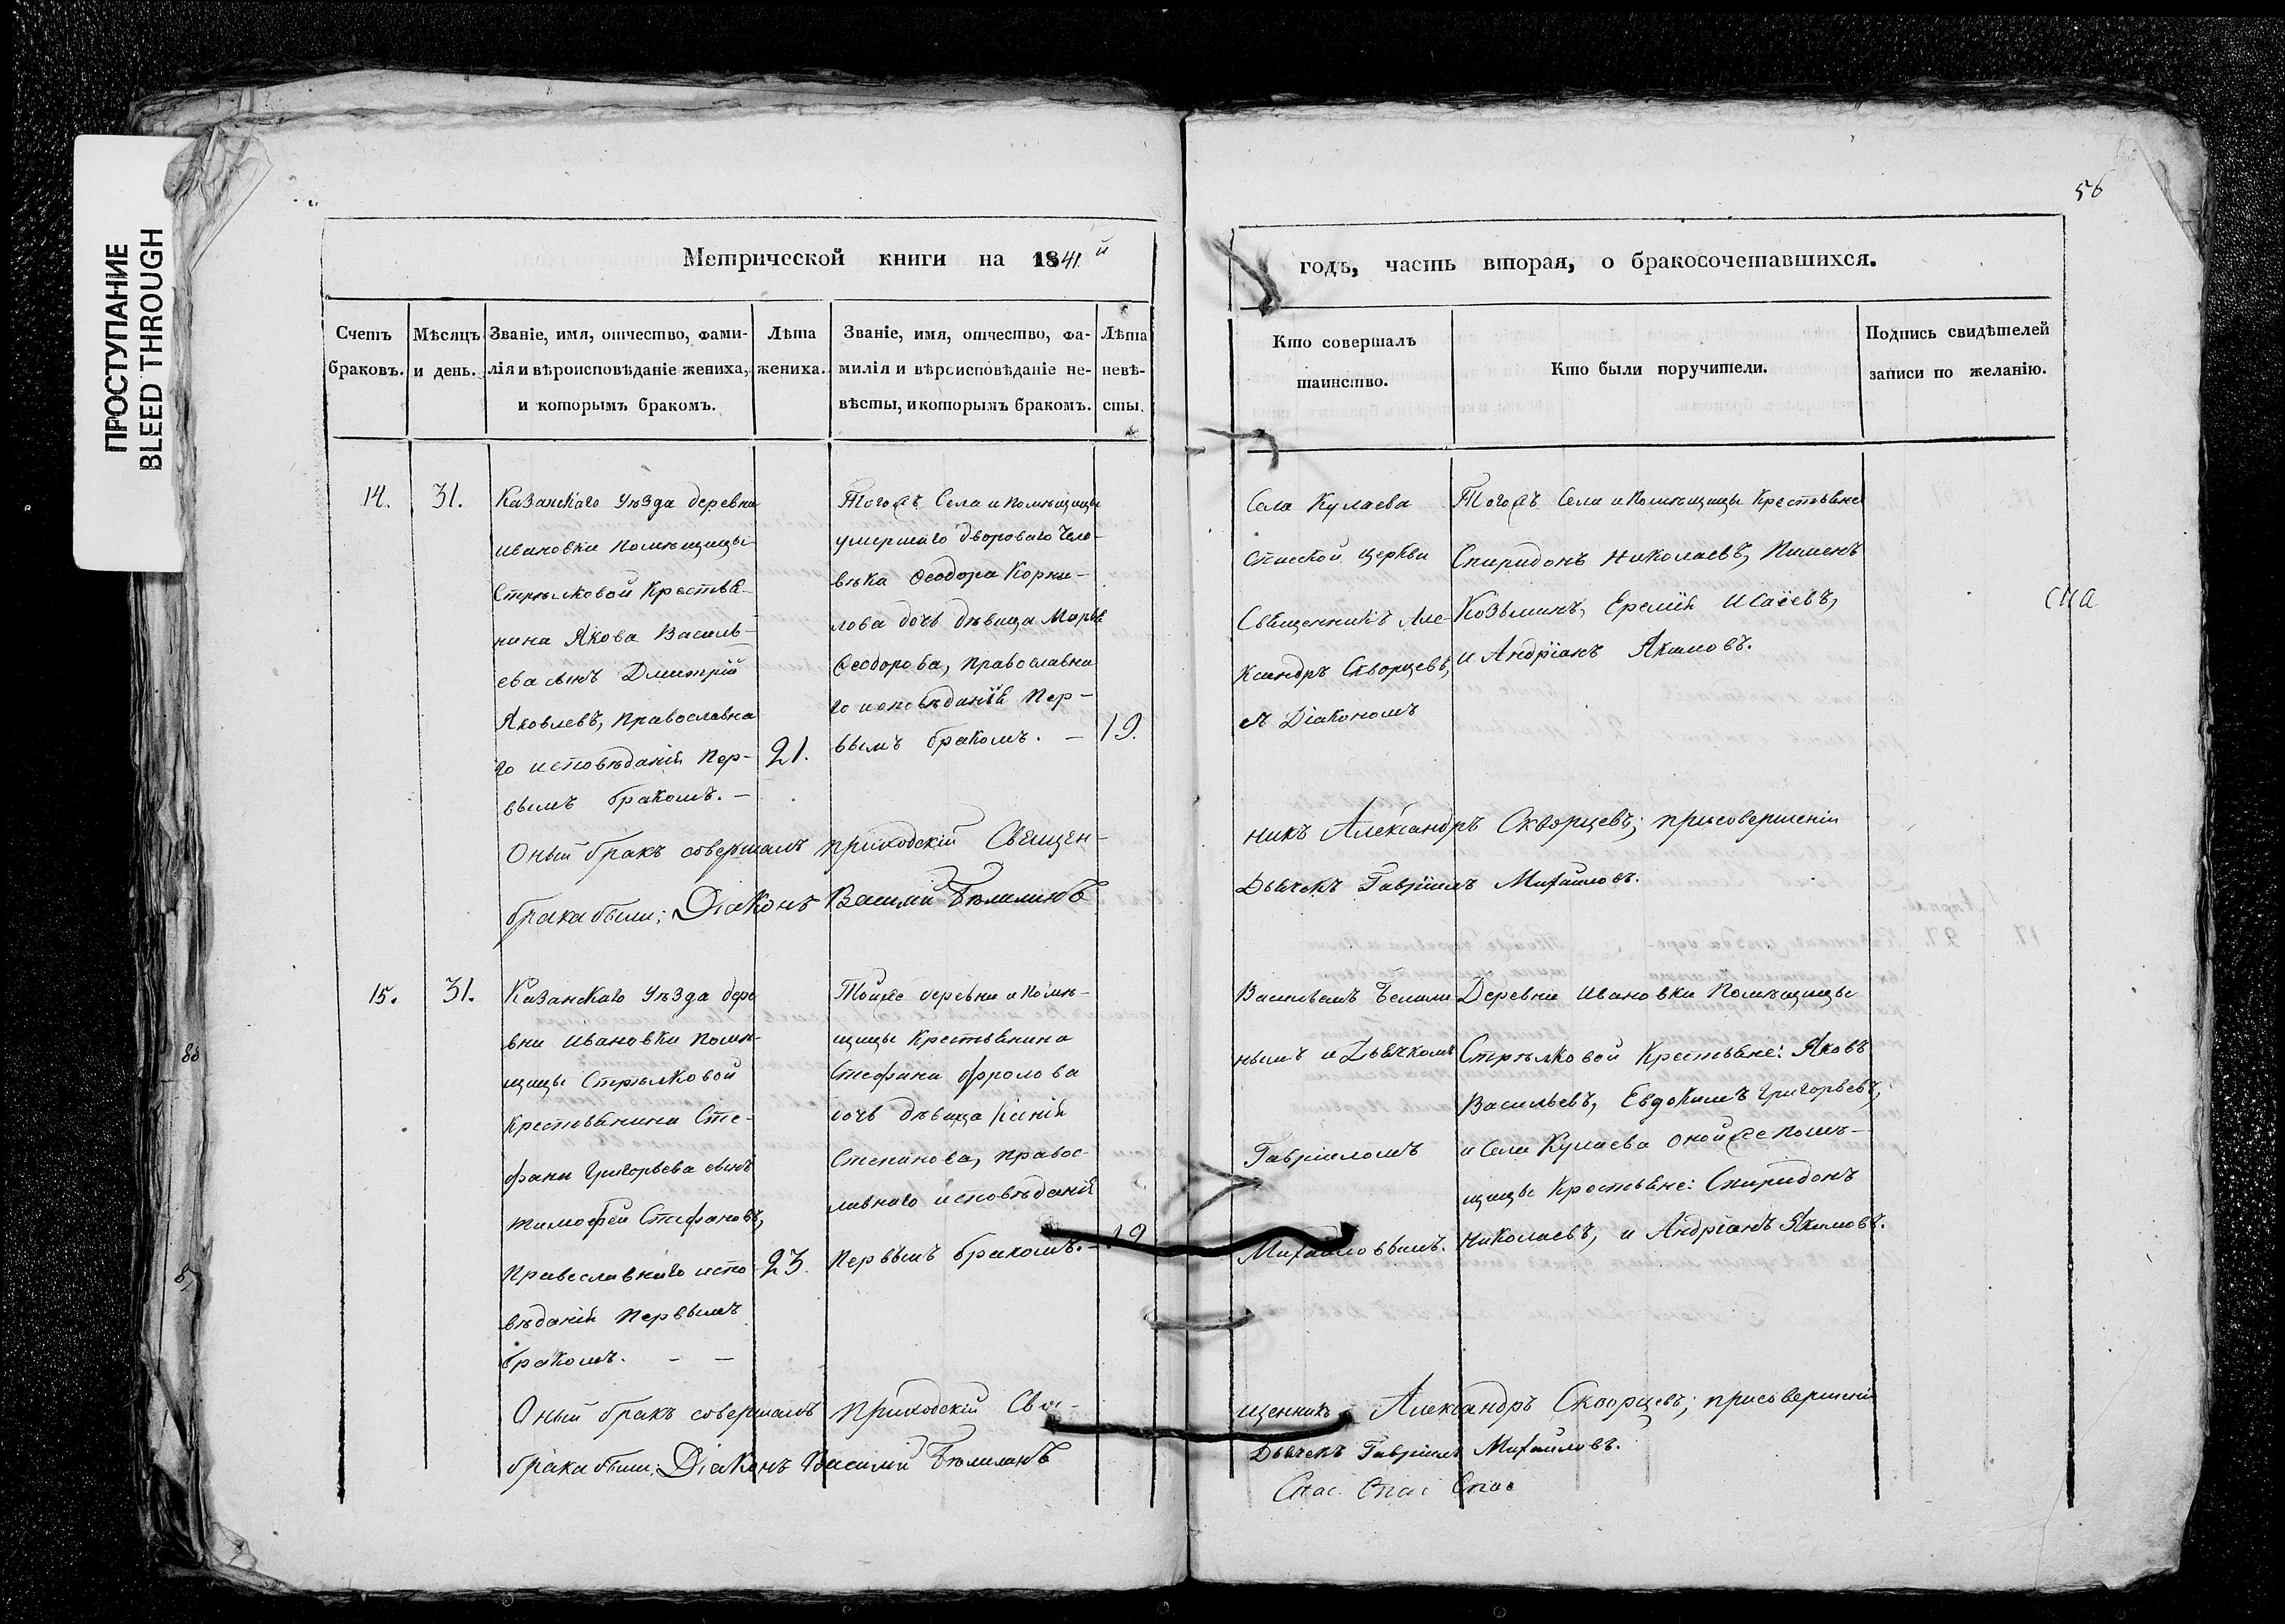 ПРОСТУПАНИЕ
BLEED THROUGH
56
Метрической книги на 1841.й
годъ, часть вторая, о бракосочетавшихся.
Счетъ
браковъ.
Мѣсяцъ
и день.
Званіе, имя, отчество, фами-
лія и вѣроисповѣданіе жениха,
и которымъ бракомъ.
Лѣта
жениха.
Званіе, имя, отчество, фа-
милія и вѣроисповѣданіе не-
вѣсты, и которымъ бракомъ.
Лѣта
невѣ-
сты.
Кто совершалъ
таинство.
Кто были поручители.
Подпись свидѣтелей
записи по желанію.
14.
31.
Казанскаго Уѣзда деревни
Ивановки помѣщицы
Стрѣлковой Крестья-
нина Якова Василь-
ева сынъ Димитрій
Яковлевъ, православна
го исповѣданія пер-
вымъ бракомъ. —
21.
Тогожъ Села и помѣщицы
умершаго двороваго чело-
вѣка Ѳеодора Корни-
лова дочь дѣвица Марья
Ѳеодорова, православна
го исповѣданія пер-
вымъ бракомъ. —
19.
Села Кулаева
Спаской церкви
Священникъ Але-
ксандръ Скворцевъ,
съ Діакономъ
Тогожъ Села и помѣщицы Крестьяне
Спиридонъ Николаевъ, Пименъ
Козьминъ, Еремій Исаіевъ,
и Андріанъ Якимовъ.
спа
Оный бракъ совершалъ приходскій Священ-
никъ Александръ Скворцевъ; присовершеніи
брака были; Діаконъ Василій Бѣлилинъ
Дьячекъ Гавріилъ Михайловъ.
15.
31.
Казанскаго Уѣзда дере
вни Ивановки помѣ-
щицы Стрѣлковой
крестьянина Сте-
фана Григорьева сынъ
Тимофей Стефановъ,
Православнаго испо
вѣданія первымъ
бракомъ. — —
23.
Тойже деревни и помѣ-
щицы Крестьянина
Стефана Фролова
дочь дѣвица Ксенія
Степанова, правос-
лавнаго исповѣданія
первымъ бракомъ. —
19
Васильемъ Белили
нымъ и Дьячкомъ
Гавріиломъ
Михайловымъ.
Деревни Ивановки помѣщицы
Стрѣлковой Крестьяне: Яковъ
Васильевъ, Евдокимъ Григорьевъ,
и Села Кулаева онойже помѣ-
щицы Крестьяне: Спиридонъ
Николаевъ, и Андріанъ Якимовъ.
Оный бракъ совершалъ приходскій Свя-
щенникъ Александръ Скворцевъ; присовершеніи
брака были; Діаконъ Василій Бѣлилинъ
Дьячекъ Гавріилъ Михайловъ.
Спас. Спас Спас